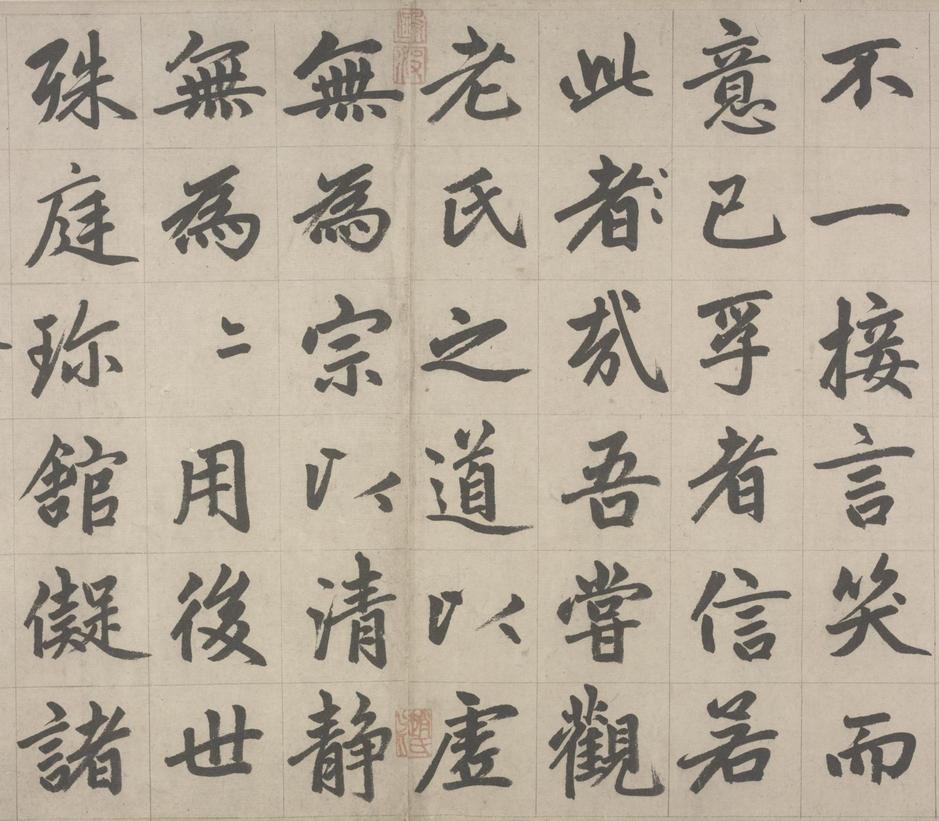 不一接言笑而
意已孚者信若
此者哉吾嘗觀
老氏之道以虛
無為宗以清静
無為〻用後世
殊庭珎舘儗諸